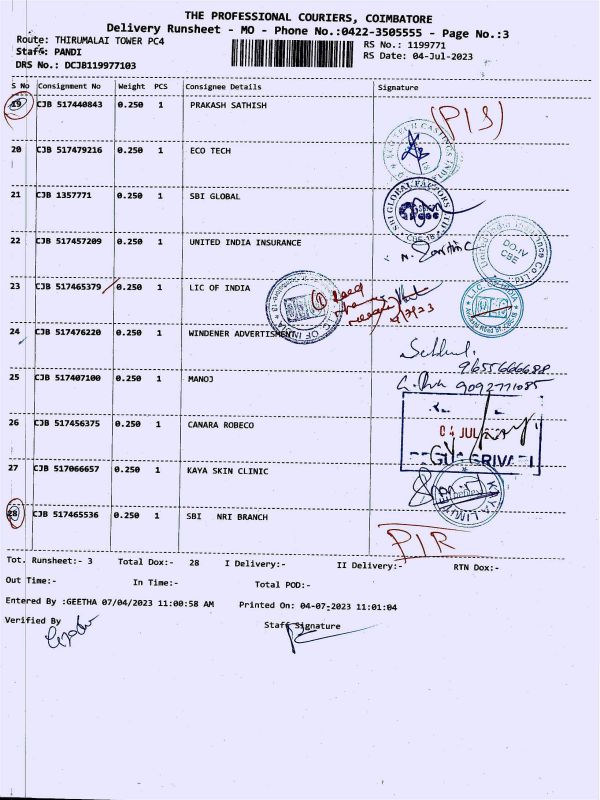 THE PROFESSIONAL COURIERS, COIMBATORE
Delivery Runsheet - MO - Phone No.:0422-3505555 - Page No.:3
Route: THIRUMALAI TOWER PC4
RS No.: 1199771
Staff: PANDI
RS Date: 04-Jul-2023
DRS No.: DCJB119977103
S No Consignment No Weight PCS Consignee Details Signature
19 CJB 517440843 0.250 1 PRAKASH SATHISH
(PIS)
20 CJB 517479216 0.250 1 ECO TECH
21 CJB 1357771 0.250 1 SBI GLOBAL
SBI GLOBAL FACTORS LTD
CBE-18
22 CJB 517457209 0.250 1 UNITED INDIA INSURANCE
United India Insurance Co.
DO.IV
CBE
23 CJB 517465379 0.250 1 LIC OF INDIA
LIC OF INDIA
4/7/23
24 CJB 517476220 0.250 1 WINDENER ADVERTISMENT
9655666688
25 CJB 517407100 0.250 1 MANOJ
9092771085
26 CJB 517456375 0.250 1 CANARA ROBECO
04 JUL 2023
27 CJB 517066657 0.250 1 KAYA SKIN CLINIC
KAYA LIMITED
28 CJB 517465536 0.250 1 SBI NRI BRANCH
PIR
Tot. Runsheet:- 3 Total Dox:- 28 I Delivery:- II Delivery:- RTN Dox:-
Out Time:- In Time:- Total POD:-
Entered By :GEETHA 07/04/2023 11:00:58 AM Printed On: 04-07-2023 11:01:04
Verified By Staff Signature